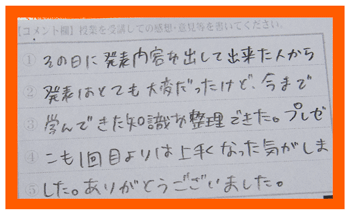 【コメント欄】授業を受講しての感想・意見等を書いてください。
① その日に発表内容を出して出来た人から
② 発表はとても大変だったけど、今まで
③ 学んできた知識を整理できた。プレゼ
④ こも1回目よりは上手くなった気がしま
⑤ した。ありがとうございました。